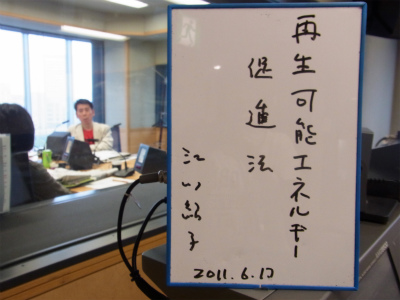 再生可能エネルギー
促進法
江川紹子
2011.6.17